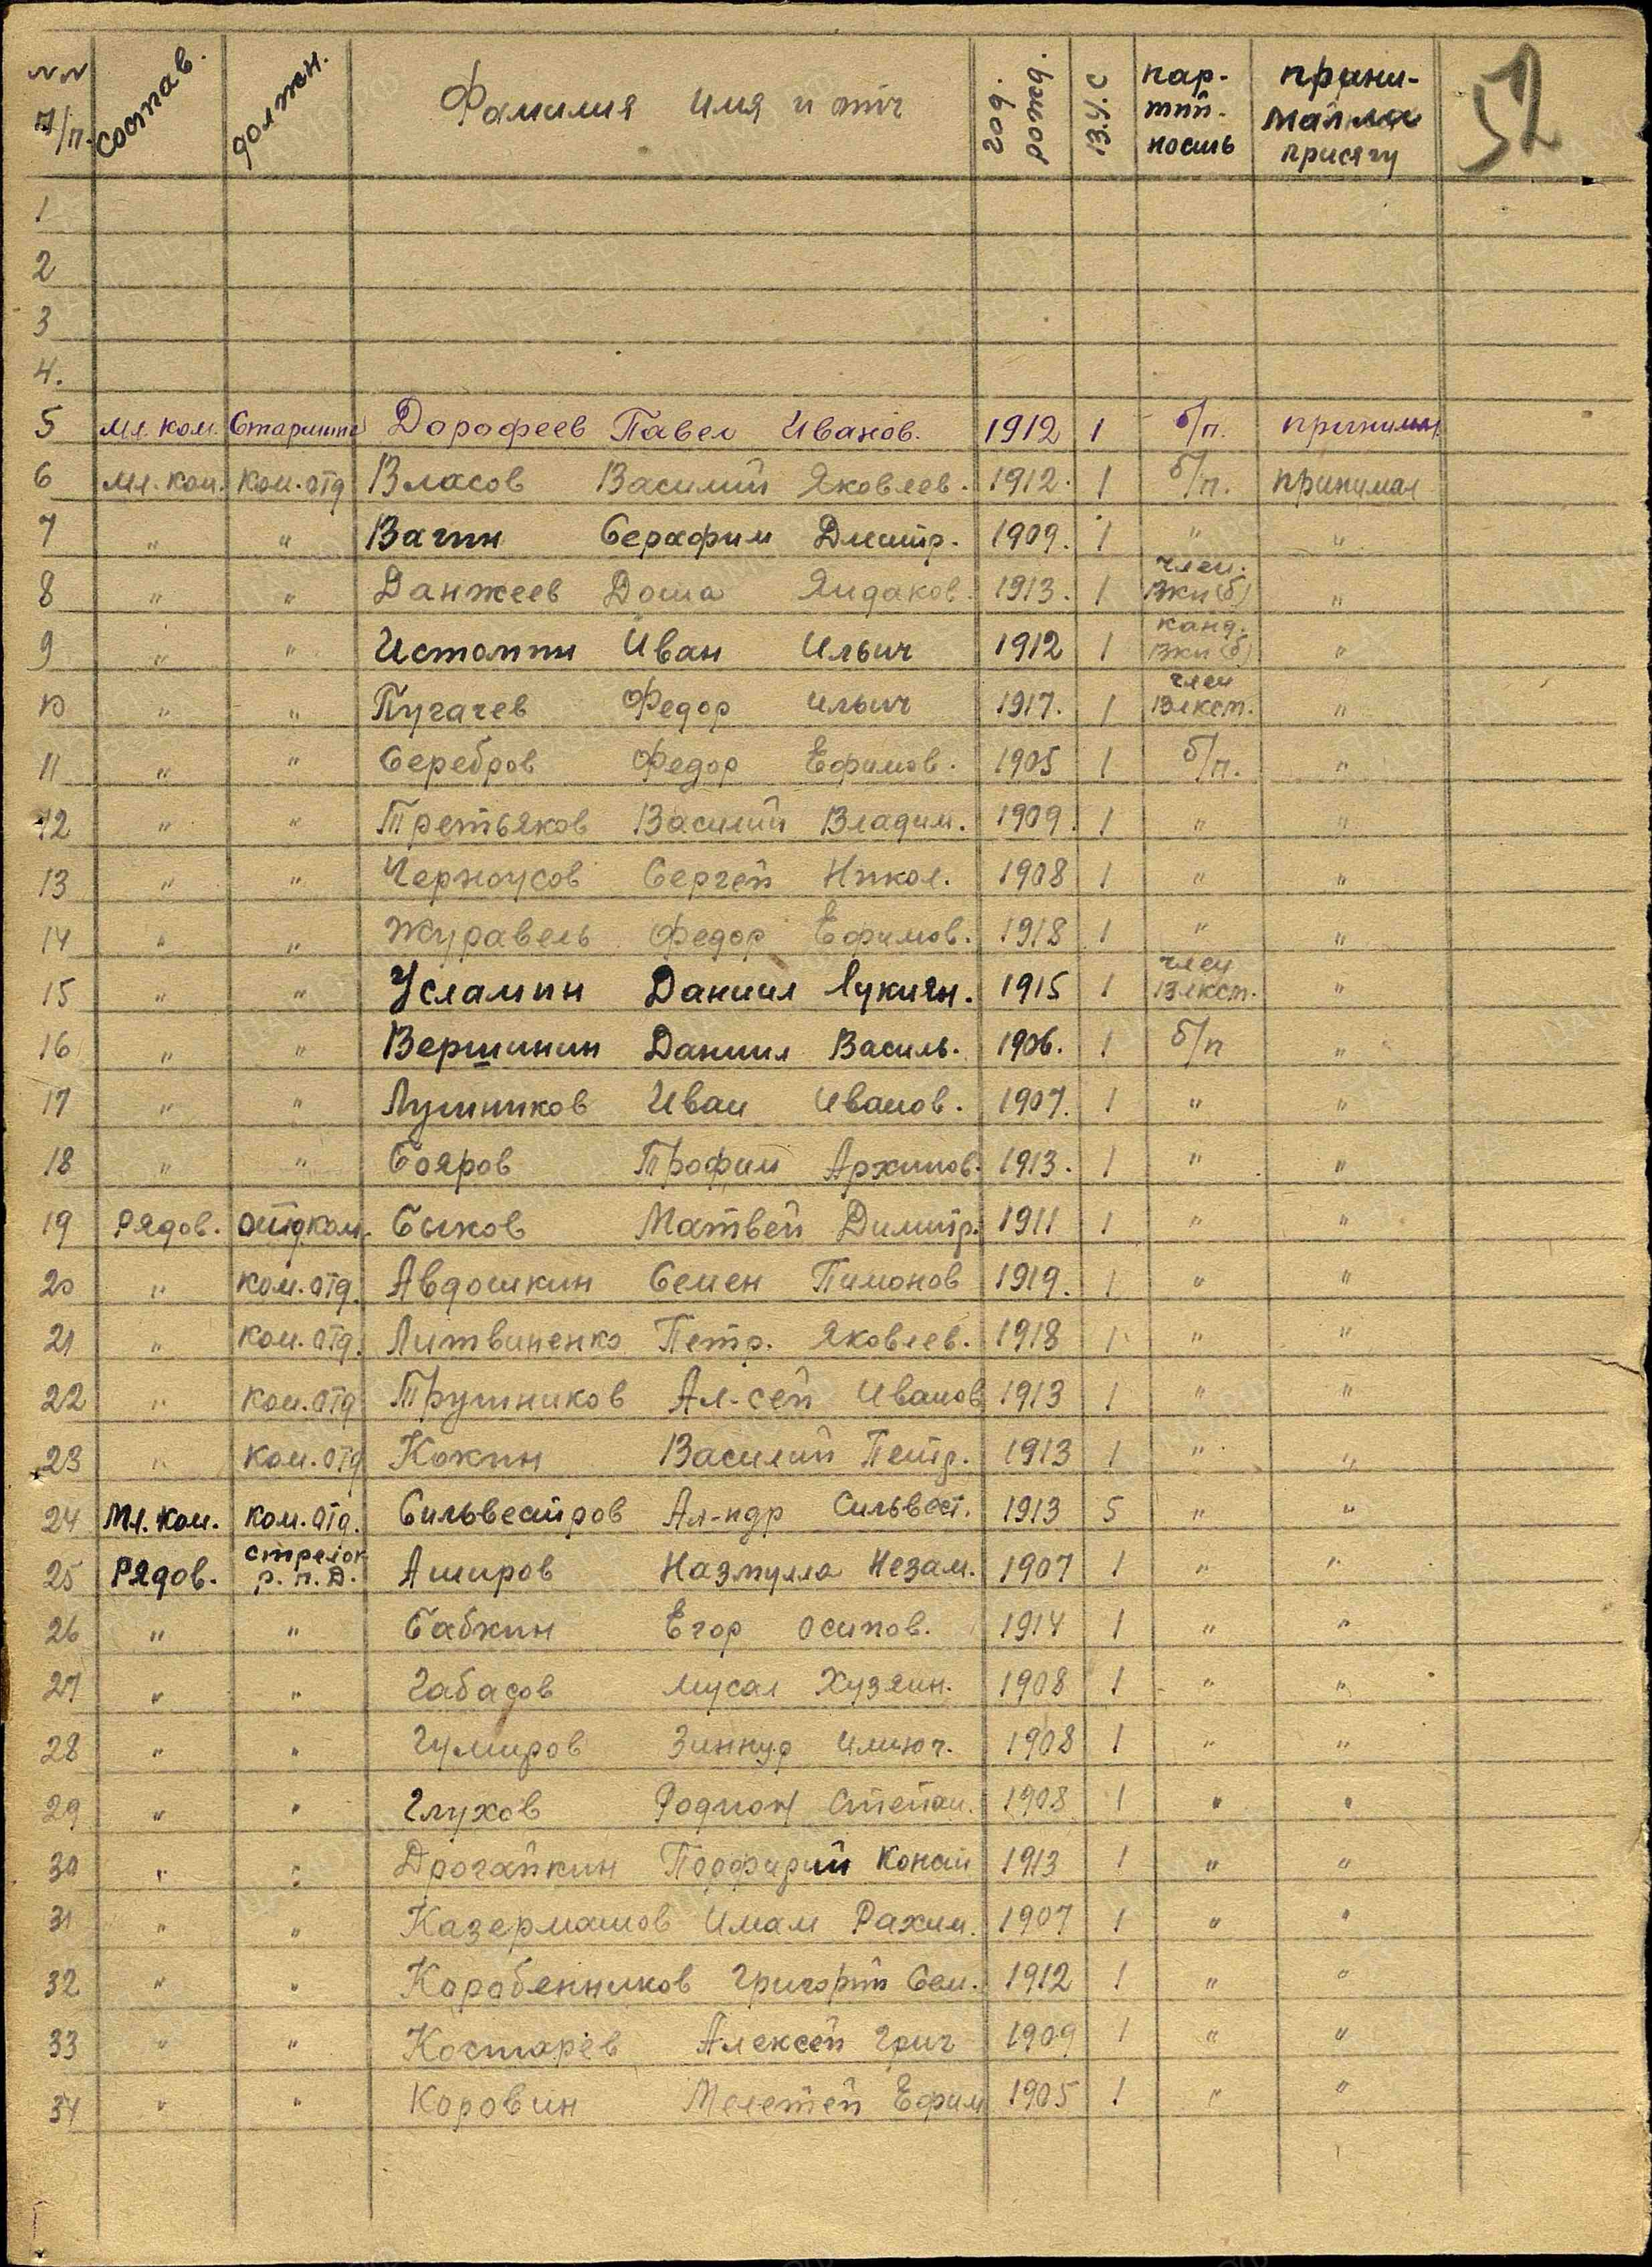 №№ п/п. состав. должн. Фамилия имя и отч год. рожд. В.У.С пар-тий-ность прини-мал ли присягу 52
1
2
3
4.
5 Мл. ком. Старшина Дорофеев Павел Иванов. 1912 1 б/п. принимал
6 Мл. ком. Ком. отд Власов Василий Яковлев. 1912. 1 б/п. принимал
7 " " Вагин Серафим Дмитр. 1909. 1 " "
8 " " Данжеев Доша Яндаков. 1913. 1 член. Вкп(б) "
9 " " Истомин Иван Ильич 1912 1 канд. Вкп(б) "
10 " " Пугачев Федор Ильич 1917. 1 член Влксм. "
11 " " Серебров Федор Ефимов. 1905 1 б/п. "
12 " " Третьяков Василий Владим. 1909. 1 " "
13 " " Черноусов Сергей Никол. 1908 1 " "
14 " " Журавель Федор Ефимов. 1918 1 " "
15 " " Усламин Даниил Лукичн. 1915 1 член Влксм. "
16 " " Вершинин Даниил Василь. 1906. 1 б/п "
17 " " Лушников Иван Иванов. 1907. 1 " "
18 " " Бояров Трофим Архипов. 1913. 1 " "
19 Рядов. отд ком. Быков Матвей Димитр. 1911 1 " "
20 " ком. отд. Авдошкин Семен Пимонов 1919. 1 " "
21 " ком. отд. Литвиненко Петр. Яковлев. 1918 1 " "
22 " ком. отд Трушников Ал-сей Иванов 1913 1 " "
23 " ком. отд Кокин Василий Петр. 1913 1 " "
24 Мл. ком. ком. отд. Сильвестров Ал-ндр Сильвест. 1913 5 " "
25 Рядов. стрелок р. п. д. Аширов Назмулла Незам. 1907 1 " "
26 " " Бабкин Егор Осипов. 1914 1 " "
27 " " Габасов Мусал Хузяин. 1908 1 " "
28 " " Гумиров Зиннур 1908 1 " "
29 " " Глухов Родион Степан. 1908 1 " "
30 " " Дрогайкин Порфирий Конан 1913 1 " "
31 " " Казермашов Имам Рахим. 1907 1 " "
32 " " Коробенников Григорий Сем. 1912 1 " "
33 " " Костарев Алексей Григ 1909 1 " "
34 " " Коровин Мелетей Ефим 1905 1 " "